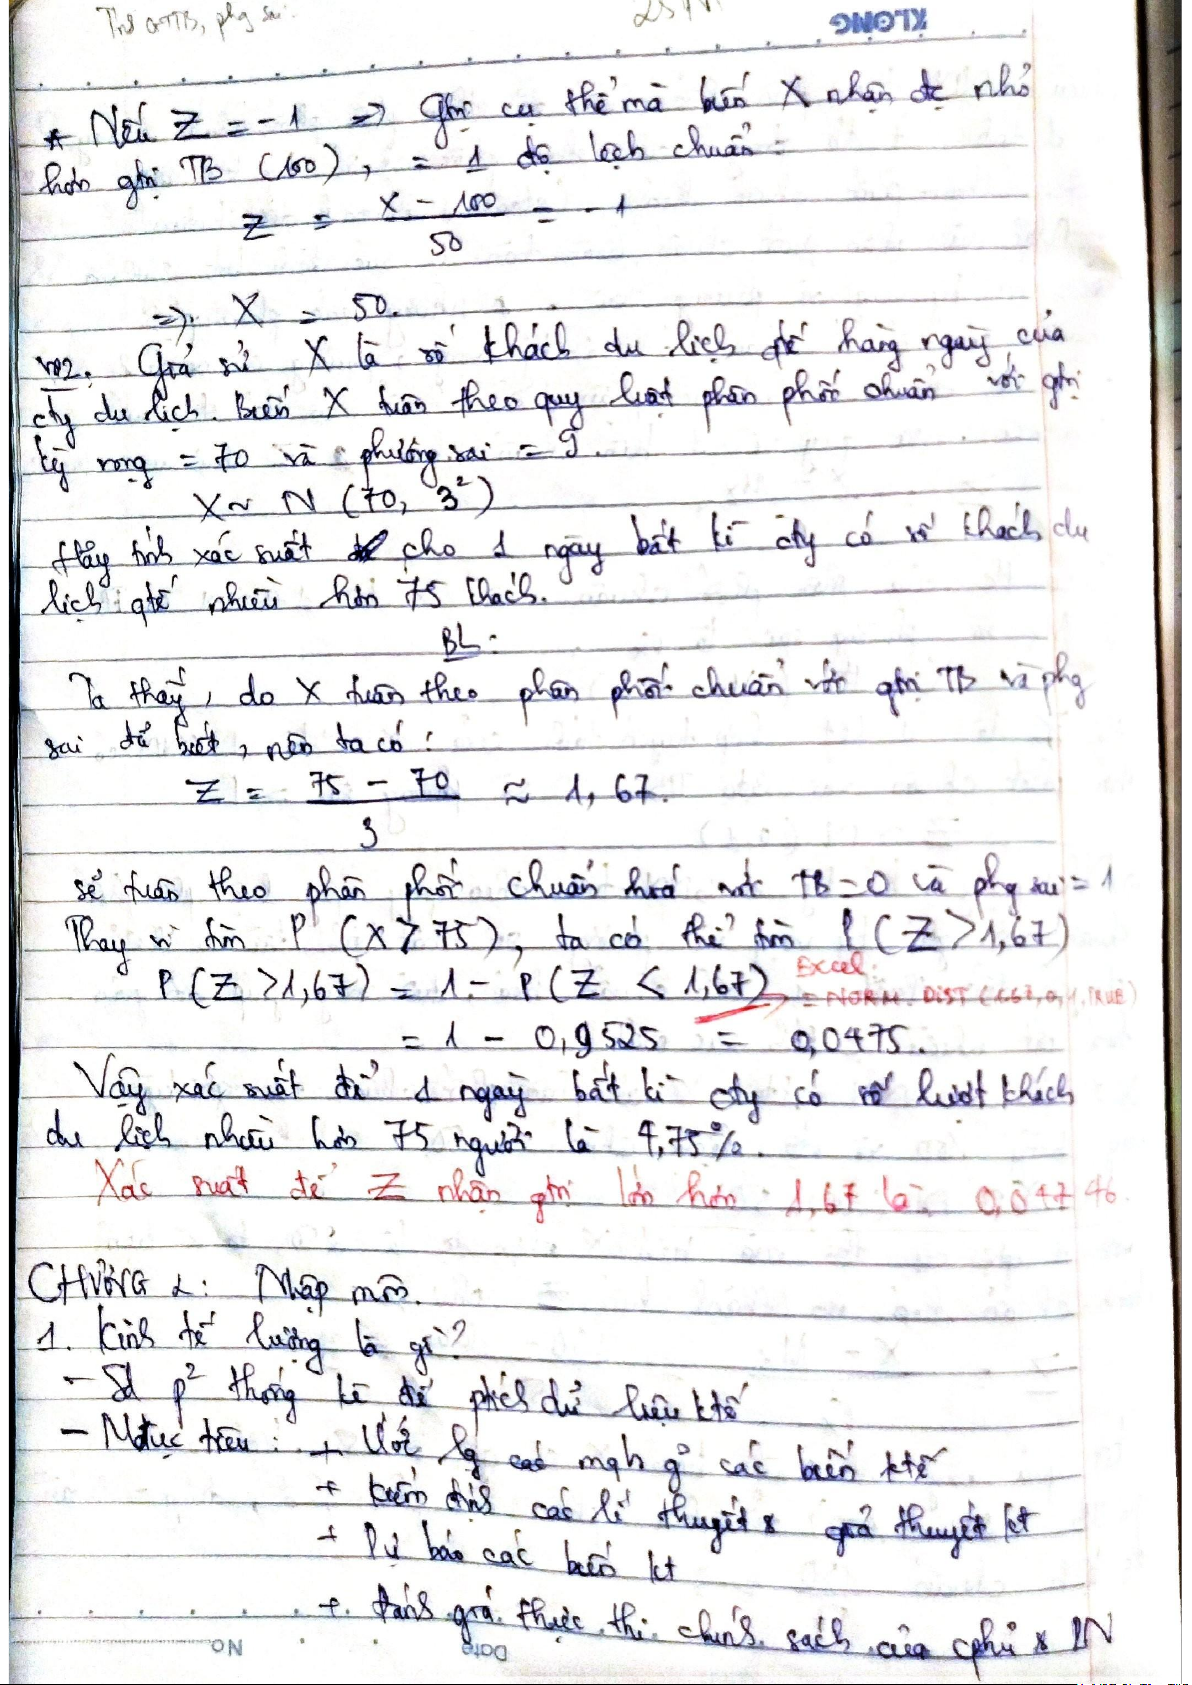 KLONG
* Nếu Z = -1 => Gtrị cụ thể mà biến X nhận đc nhỏ
hơn gtrị TB (100), = 1 độ lệch chuẩn:
Z = (X - 100)/50 = -1
=> X = 50.
VD2: Giả sử X là số khách du lịch qtế hàng ngày của
cty du lịch. Biến X tuân theo quy luật phân phối chuẩn với gtrị
kỳ vọng = 70 và phương sai = 9.
X ~ N (70, 3²)
Hãy tính xác suất cho 1 ngày bất kì cty có số khách du
lịch qtế nhiều hơn 75 khách.
BL:
Ta thấy, do X tuân theo phân phối chuẩn với gtrị TB và phg
sai đã biết, nên ta có:
Z = (75 - 70)/3 ≈ 1,67.
sẽ tuân theo phân phối chuẩn hoá với TB = 0 và phg sai = 1
Thay vì tìm P (X > 75), ta có thể tìm P (Z > 1,67)
P (Z > 1,67) = 1 - P (Z < 1,67)
Excel:
= NORM.DIST (1.67, 0, 1, TRUE)
= 1 - 0,9525 = 0,0475.
Vậy xác suất để 1 ngày bất kì cty có số lượt khách
du lịch nhiều hơn 75 người là 4,75%.
Xác suất để Z nhận gtrị lớn hơn 1,67 là: 0,04746.
CHƯƠNG 1: Nhập môn.
1. Kinh tế lượng là gì?
- Sd p² thống kê để ptích dữ liệu ktế
- Mục tiêu: + Ước lg các mqh g² các biến ktế
+ Kiểm định các lí thuyết & giả thuyết kt
+ Dự báo các biến kt
+ Đánh giá thực thi chính sách của cphủ & DN
Date
No